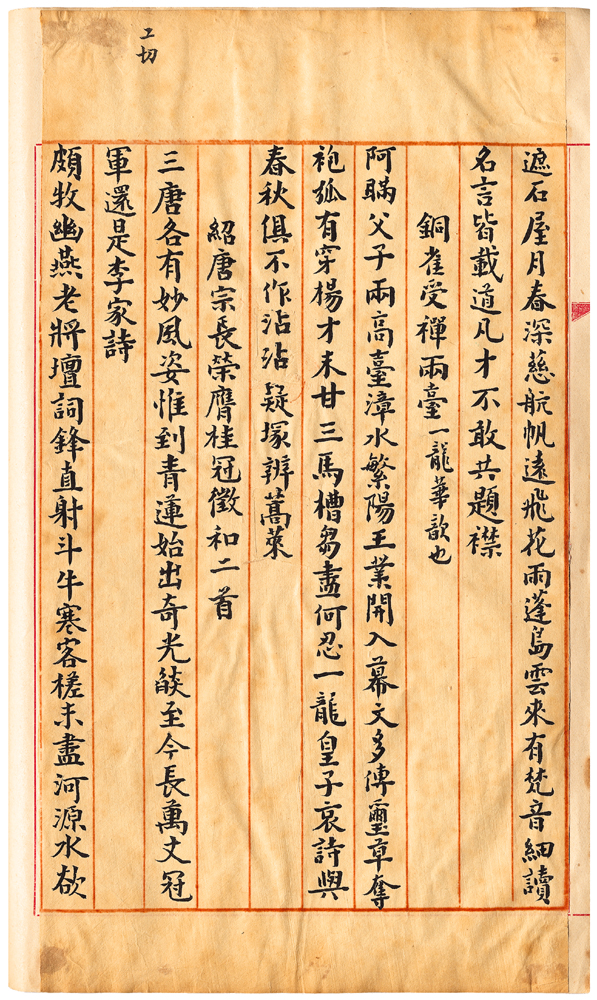 工切
遮石屋月春深慈航帆遠飛花雨蓬島雲來有梵音細讀
名言皆載道凡才不敢共題襟
銅雀受禪兩臺一龍華歆也
阿瞞父子兩高臺漳水繁陽王業開入幕文多傳璽草奪
袍弧有穿楊才未甘三馬槽芻盡何忍一龍皇子哀詩與
春秋俱不作沾沾疑塚辨蒿萊
紹唐宗長榮膺桂冠徵和二首
三唐各有妙風姿惟到青蓮始出奇光燄至今長萬丈冠
軍還是李家詩
頗牧幽燕老將壇詞鋒直射斗牛寒客槎未盡河源水欲